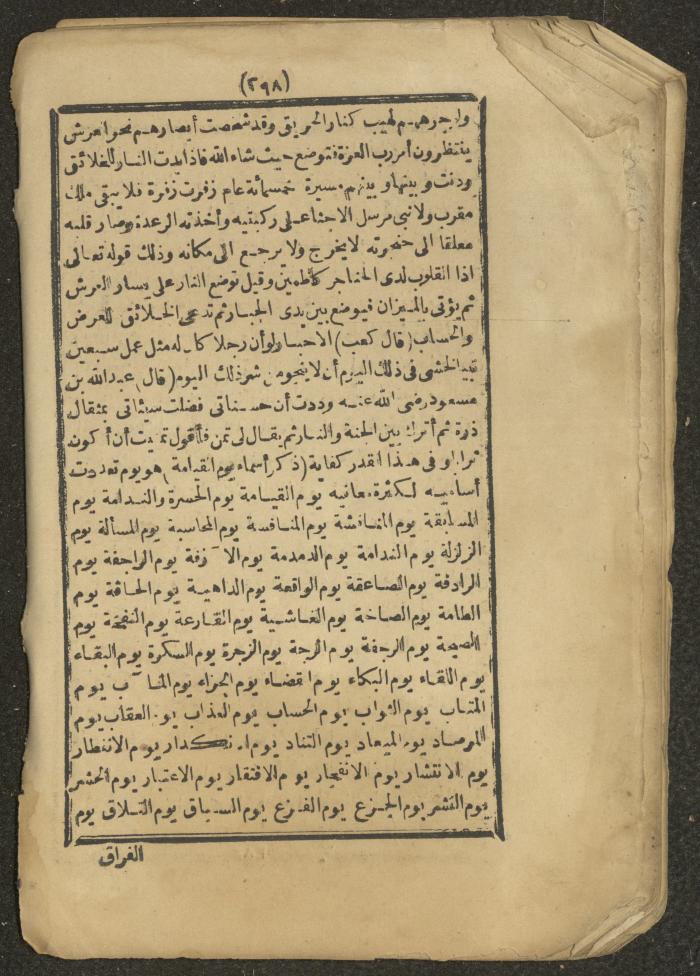 (٢٩٨)
ولاجرهـم لهيب كنار الحريق وقد شخصت أبصارهـم نحو العرش
ينتظرون أمر رب العزة فتوضع حيث شاء الله فاذا بدت النـار للخلائق
ودنت وبينها وبينهم مسيرة خمسمائة عام زفرت زفرة فلا يبقى ملك
مقرب ولا نبي مرسل الاجثا على ركبتيه وأخذته الرعدة وصار قلبه
معلقا الى حنجرته لا يخرج ولا يرجـع الى مكانه وذلك قوله تعالى
اذا القلوب لدى الحناجر كاظمين وقيل توضع النار على يسار العرش
ثم يؤتى بالمـيزان فيوضع بين يدى الجبـار ثم تدعى الخـلائق للعرض
والحساب (قال كعب) الاحبـار لو أن رجلا كان له مثل عمل سبعين
نبيا لخشى فى ذلك اليوم أن لا ينجو من شر ذلك اليوم (قال) عبد الله بن
مسعود رضى الله عنـه وددت أن حسـناتى فضلت سيئاتى بمثقال
ذرة ثم أترك بين الجنة والنـار ثم يقـال لى تمن فأقول تمنيت أن أكون
ترابا وفى هـذا القدر كفاية (ذكر أسماء يوم القيامة) هو يوم تعددت
أساميـه لـكثرة معانيه يوم القيـامة يوم الحسرة والنـدامة يوم
المسابقة يوم المنـاقشة يوم المنـافسة يوم المحاسبة يوم المسألة يوم
الزلزلة يوم الندامة يوم الدمدمة يوم الآزفة يوم الراجفة يوم
الرادفة يوم الصـاعقة يوم الواقعة يوم الداهيـة يوم الحـاقة يوم
الطامة يوم الصـاخة يوم الغـاشـية يوم القـارعة يوم النفخة يوم
الصيحة يوم الرجفة يوم الرجة يوم الزجرة يوم السكرة يوم البقـاء
يوم اللقـاء يوم البكاء يوم القضـاء يوم الجزاء يوم المـآب يوم
المتـاب يوم الثواب يوم الحساب يوم العذاب يوم العقاب يوم
المرصـاد يوم الميعاد يوم التناد يوم الانـكدار يوم الانفطار
يوم الانتشار يوم الانفجار يوم الافتقار يوم الاعتبار يوم الحشر
يوم النشر يوم الجـزع يوم الفـزع يوم السـباق يوم التـلاق يوم
الفراق